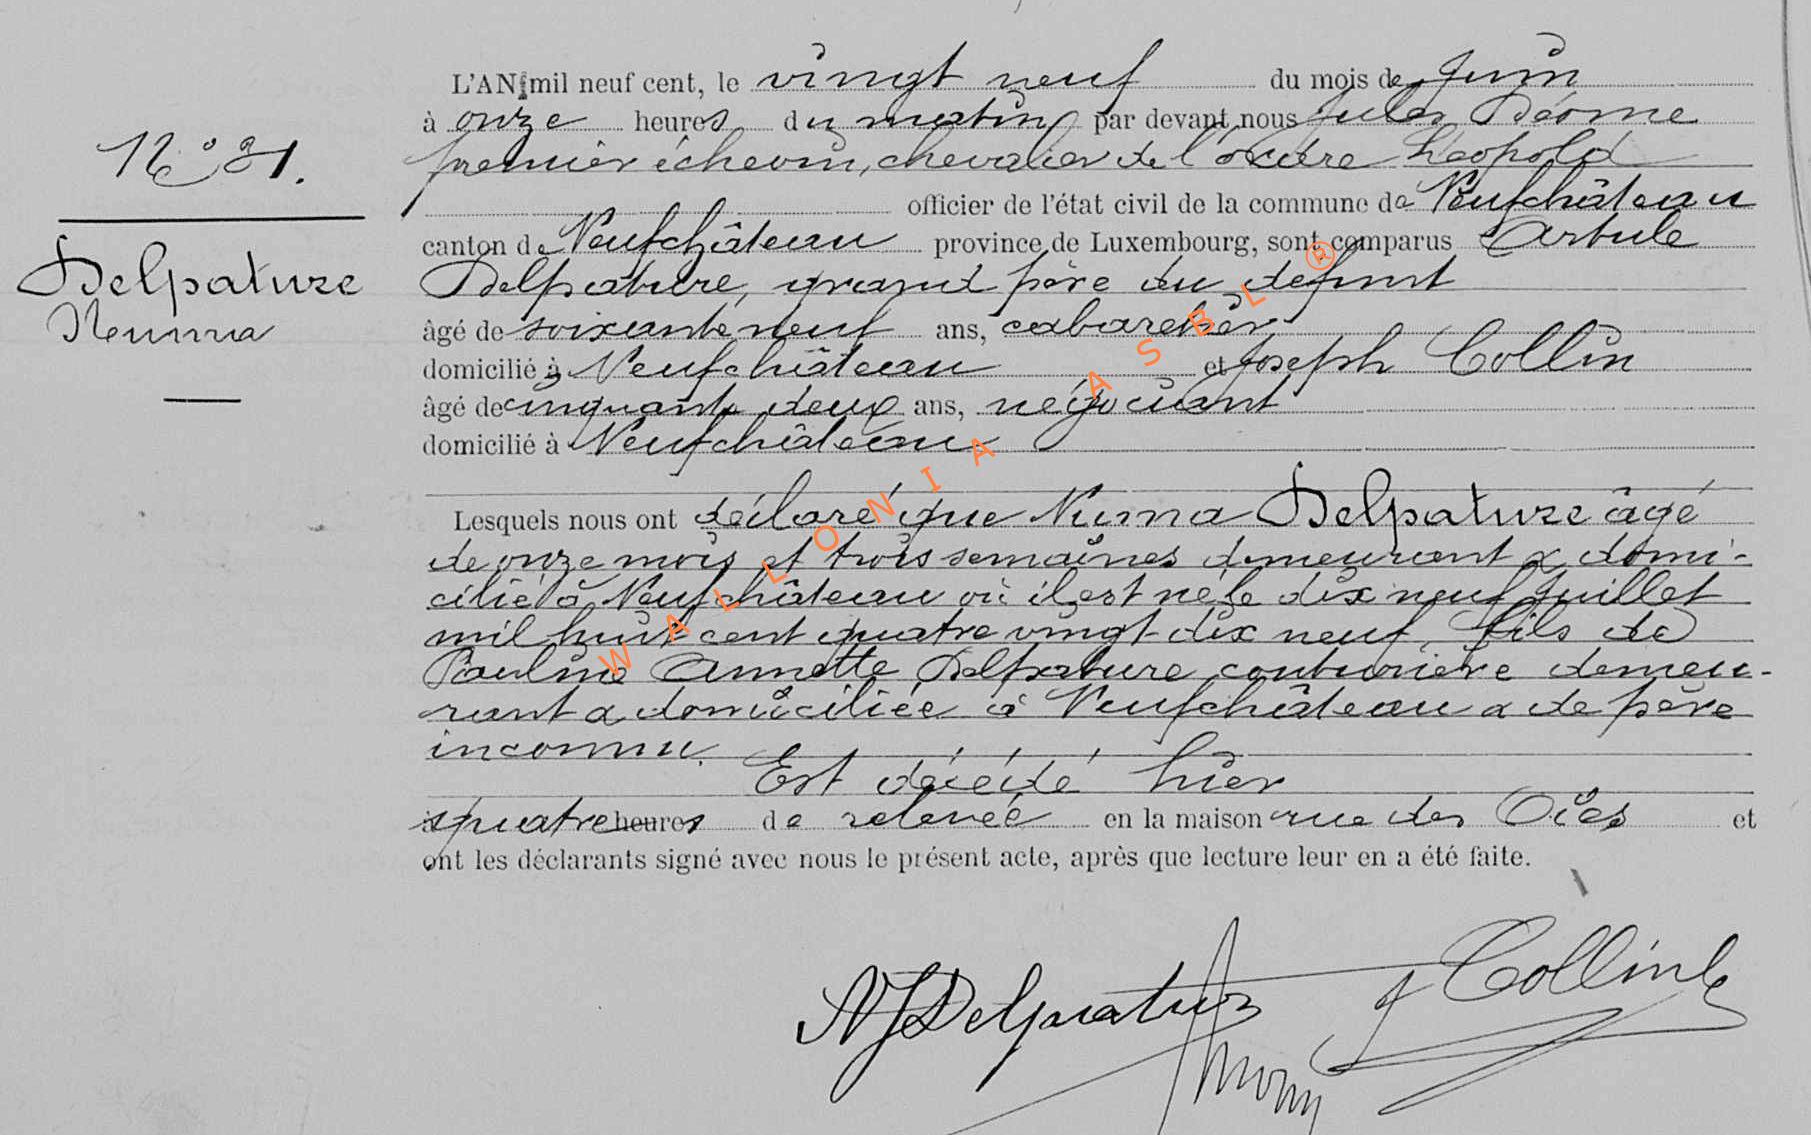 L'AN mil neuf cent, le vingt neuf du mois de Juin
à onze heures du matin par devant nous Jules
premier échevin, chevalier de l'ordre Léopold
officier de l'état civil de la commune de Neufchâteau
canton de Neufchâteau province de Luxembourg, sont comparus
Delpature, grand père du défunt
âgé de soixante neuf ans, cabaretier
domicilié à Neufchâteau et Joseph Collin
âgé de cinquante deux ans, négociant
domicilié à Neufchâteau
N° 31.
Delpature
Numa
Lesquels nous ont déclaré que Numa Delpature âgé
de onze mois et trois semaines demeurant & domi-
cilié à Neufchâteau où il est né le dix neuf Juillet
mil huit cent quatre vingt-dix neuf, fils de
Pauline Annette Delpature couturière demeu-
rant & domiciliée à Neufchâteau & de père
inconnu.
Est décédé hier
à quatre heures de relevée en la maison rue des Oies et
ont les déclarants signé avec nous le présent acte, après que lecture leur en a été faite.
Delpature
J Collin
WALLONIA ASBL ®